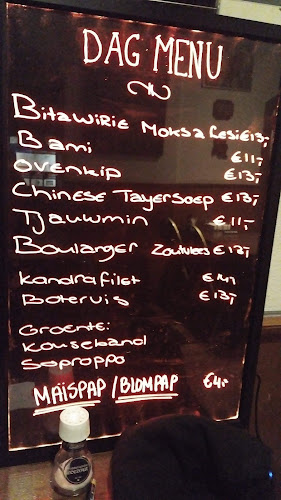 DAG MENU
BITAWIRIE MOKSA LESI €13,-
BAMI €11,-
OVENKIP €13,-
CHINESE TAYERSOEP €13,-
TJAUWMIN €11,-
BOULANGER ZOUTVLEES €13,-
KANDRAFILET €14,-
BOTERVIS €13,-
GROENTE:
KOUSEBAND
SOPROPPO
MAÏSPAP / BLOMPAP €4,-